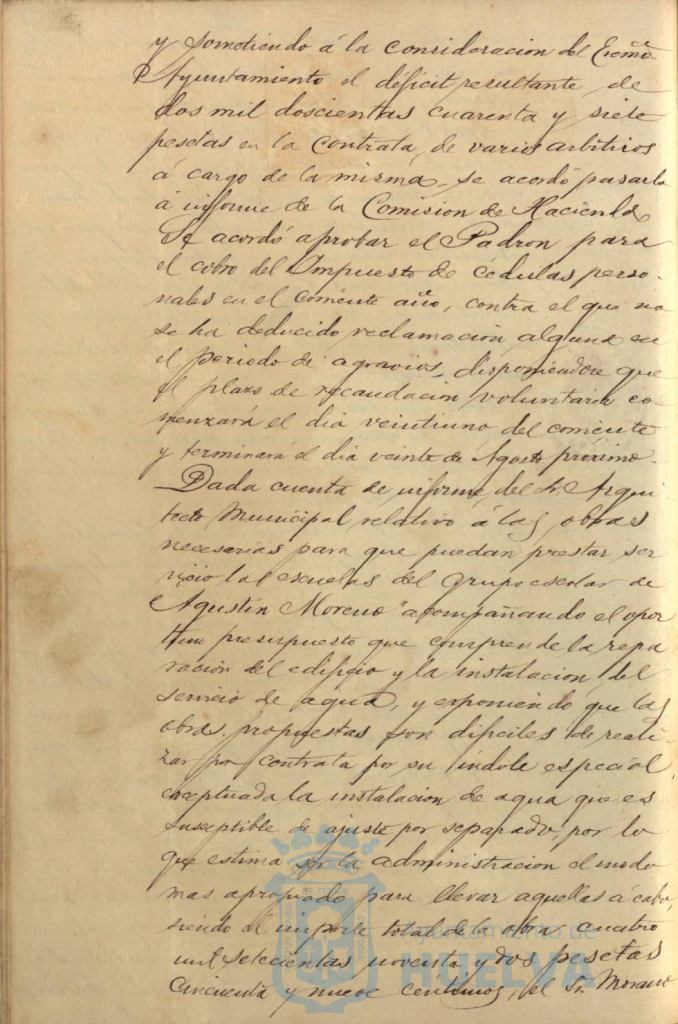 y sometiendo á la consideracion del Excmo
Ayuntamiento el déficit resultante, de
dos mil doscientas cuarenta y siete
pesetas en la contrata, de varios arbitrios
á cargo de la misma, se acordó pasarla
á informe de la Comision de Hacienda
Se acordó aprobar el Padron para
el cobro del Impuesto de cédulas perso-
nales en el corriente año, contra el que no
se ha deducido reclamación alguna en
el periodo de agravios, disponiendose que
el plazo de recaudacion voluntaria co-
menzará el dia veintiuno del corriente
y terminará el dia veinte de Agosto próximo.
Dada cuenta de informe, del Sr. Arqui
tecto Municipal, relativo á las obras
necesarias para que puedan prestar ser
vicio las escuelas del Grupo escolar de
"Agustin Moreno" acompañando el opor
tuno presupuesto que comprende la repa
ración del edificio y la instalacion del
servicio de agua, y exponiendo que las
obras propuestas son dificiles de reali
zar por contrata por su indole especial,
exceptuada la instalacion de agua que es
susceptible de ajuste por separado, por lo
que estima ser la administracion el modo
mas apropiado para llevar aquellas á cabo,
siendo el importe total de la obra cuatro
mil setecientas noventa y dos pesetas
cincuenta y nueve centimos, el Sr. Morano
Ayuntamiento de
HUELVA